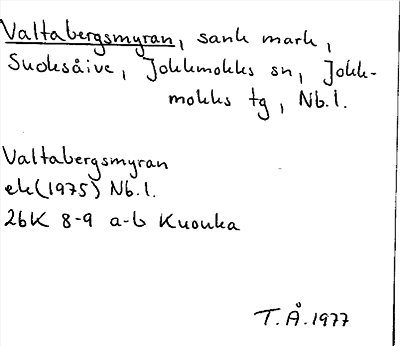 Valtabergsmyran, sank mark,
Suoksåive, Jokkmokks sn, Jokk-
mokks tg, Nb.l.
Valtabergsmyran
ek(1975) Nb.l.
26K 8-9 a-b Kuouka
T.Å.1977